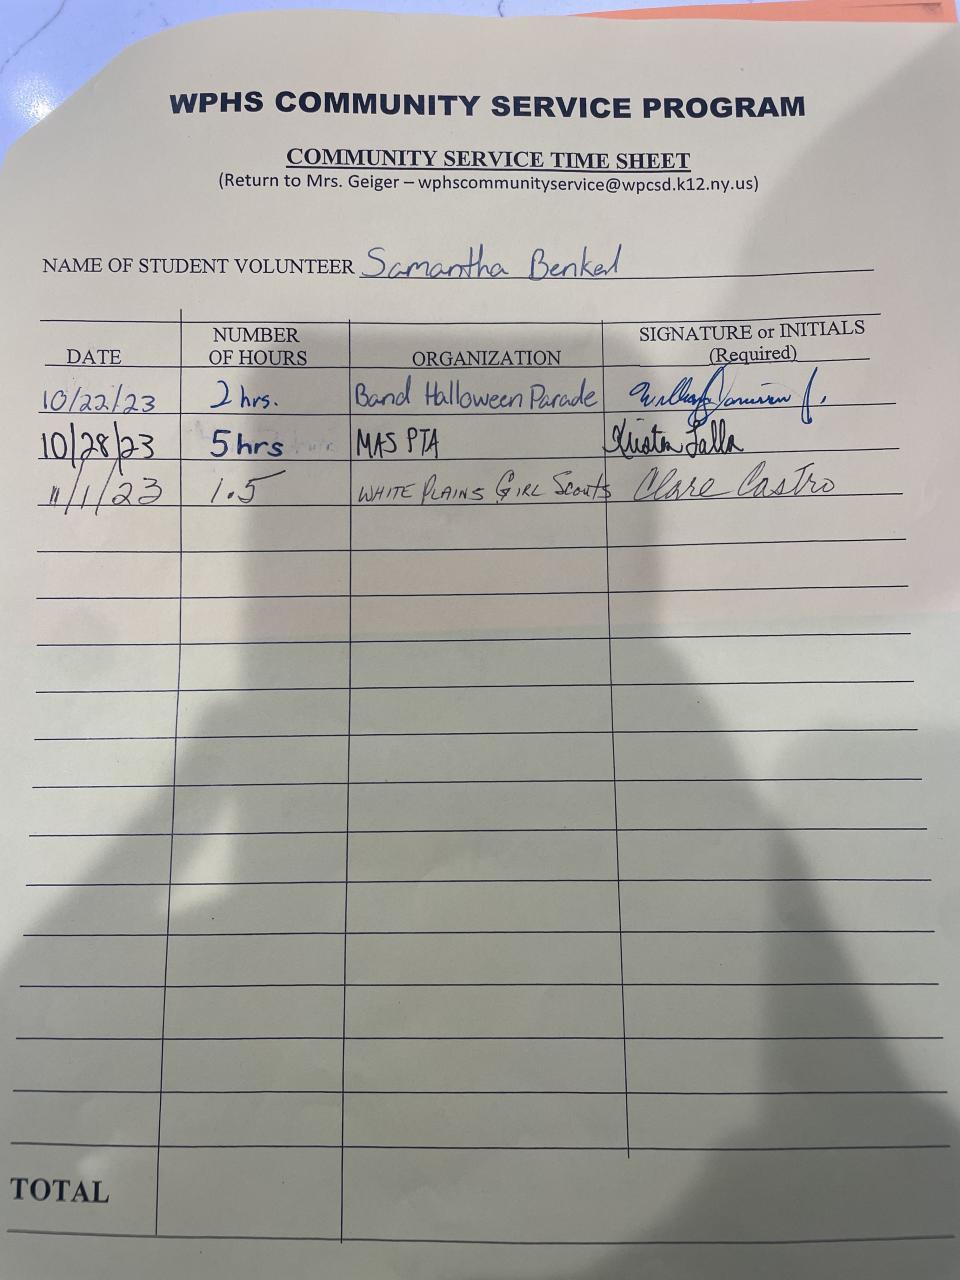 WPHS COMMUNITY SERVICE PROGRAM
COMMUNITY SERVICE TIME SHEET
(Return to Mrs. Geiger – wphscommunityservice@wpcsd.k12.ny.us)
NAME OF STUDENT VOLUNTEER Samantha Benkel
DATE NUMBER OF HOURS ORGANIZATION SIGNATURE or INITIALS (Required)
10/22/23 2 hrs. Band Halloween Parade William Jr.
10/28/23 5 hrs MAS PTA Kristen Lalla
11/1/23 1.5 WHITE PLAINS GIRL SCOUTS Clare Castro
TOTAL